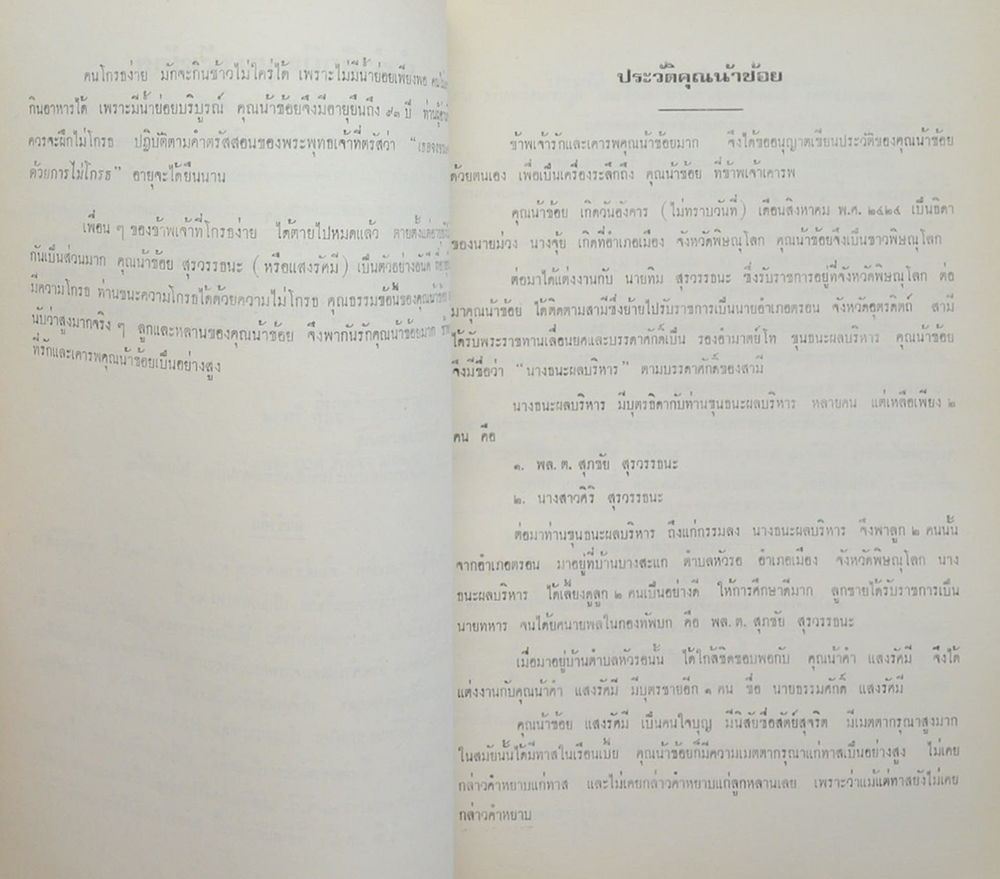 คนโกรธง่าย มักจะกินข้าวไม่ใคร่ได้ เพราะไม่มีน้ำย่อยเพียงพอ
กินอาหารได้ เพราะมีน้ำย่อยบริบูรณ์ คุณน้าช้อยจึงมีอายุยืนถึง ๙๓ ปี
ควรจะฝึกไม่โกรธ ปฏิบัติตามคำตรัสสอนของพระพุทธเจ้าที่ตรัสว่า
ด้วยการไม่โกรธ” อายุจะได้ยืนนาน
เพื่อน ๆ ของข้าพเจ้าที่โกรธง่าย ได้ตายไปหมดแล้ว ตายตั้งแต่
กันเป็นส่วนมาก คุณน้าช้อย สุรวรรธนะ (หรือแสงรัศมี) เป็นตัวอย่างอันดี
มีความโกรธ ท่านชนะความโกรธได้ด้วยความไม่โกรธ คุณธรรมข้อนี้ของคุณน้าช้อย
นับว่าสูงมากจริง ๆ ลูกและหลานของคุณน้าช้อย จึงพากันรักคุณน้าช้อยมาก
ที่รักและเคารพคุณน้าช้อยเป็นอย่างสูง
ประวัติคุณน้าช้อย
ข้าพเจ้ารักและเคารพคุณน้าช้อยมาก จึงได้ขออนุญาตเขียนประวัติของคุณน้าช้อย
ด้วยตนเอง เพื่อเป็นเครื่องระลึกถึง คุณน้าช้อย ที่ข้าพเจ้าเคารพ
คุณน้าช้อย เกิดวันอังคาร (ไม่ทราบวันที่) เดือนสิงหาคม พ.ศ. ๒๔๒๕ เป็นธิดา
ของนายม่วง นางจุ้ย เกิดที่อำเภอเมือง จังหวัดพิษณุโลก คุณน้าช้อยจึงเป็นชาวพิษณุโลก
ต่อมาได้แต่งงานกับ นายทิม สุรวรรธนะ ซึ่งรับราชการอยู่ที่จังหวัดพิษณุโลก ต่อ
มาคุณน้าช้อย ได้ติดตามสามีซึ่งย้ายไปรับราชการเป็นนายอำเภอตรอน จังหวัดอุตรดิตถ์ สามี
ได้รับพระราชทานเลื่อนยศและบรรดาศักดิ์เป็น รองอำมาตย์โท ขุนธนะผลบริหาร คุณน้าช้อย
จึงมีชื่อว่า “นางธนะผลบริหาร” ตามบรรดาศักดิ์ของสามี
นางธนะผลบริหาร มีบุตรธิดากับท่านขุนธนะผลบริหาร หลายคน แต่เหลือเพียง ๒
คน คือ
๑. พล. ต. สุภชัย สุรวรรธนะ
๒. นางสาวศิริ สุรวรรธนะ
ต่อมาท่านขุนธนะผลบริหาร ถึงแก่กรรมลง นางธนะผลบริหาร จึงพาลูก ๒ คนนั้น
จากอำเภอตรอน มาอยู่ที่บ้านบางสะแก ตำบลหัวรอ อำเภอเมือง จังหวัดพิษณุโลก นาง
ธนะผลบริหาร ได้เลี้ยงดูลูก ๒ คนเป็นอย่างดี ให้การศึกษาดีมาก ลูกชายได้รับราชการเป็น
นายทหาร จนได้ยศนายพลในกองทัพบก คือ พล. ต. สุภชัย สุรวรรธนะ
เมื่อมาอยู่บ้านตำบลหัวรอนั้น ได้ใกล้ชิดชอบพอกับ คุณน้าคำ แสงรัศมี จึงได้
แต่งงานกับคุณน้าคำ แสงรัศมี มีบุตรชายอีก ๑ คน ชื่อ นายธรรมศักดิ์ แสงรัศมี
คุณน้าช้อย แสงรัศมี เป็นคนใจบุญ มีนิสัยซื่อสัตย์สุจริต มีเมตตากรุณาสูงมาก
ในสมัยนั้นได้มีทาสในเรือนเบี้ย คุณน้าช้อยก็มีความเมตตากรุณาแก่ทาสเป็นอย่างสูง ไม่เคย
กล่าวคำหยาบแก่ทาส และไม่เคยกล่าวคำหยาบแก่ลูกหลานเลย เพราะว่าแม้แต่ทาสยังไม่เคย
กล่าวคำหยาบ